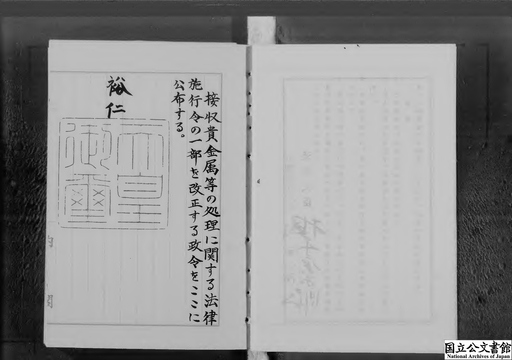 接収貴金属等の処理に関する法律
施行令の一部を改正する政令をここに
公布する。
裕仁
天皇
御璽
内閣
国立公文書館
National Archives of Japan